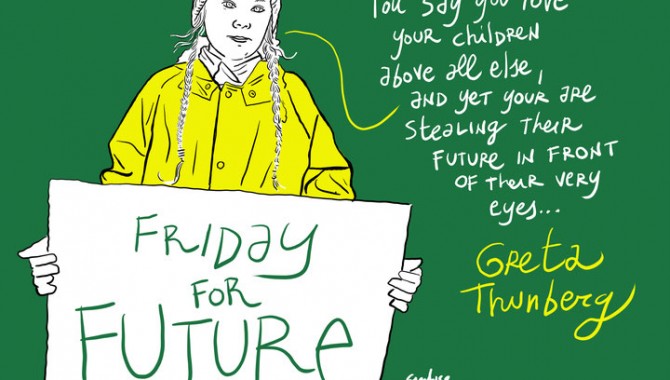 You say you love
your children
above all else,
and yet your are
stealing their
future in front
of their very
eyes...
Greta
Thunberg
Friday
for
Future